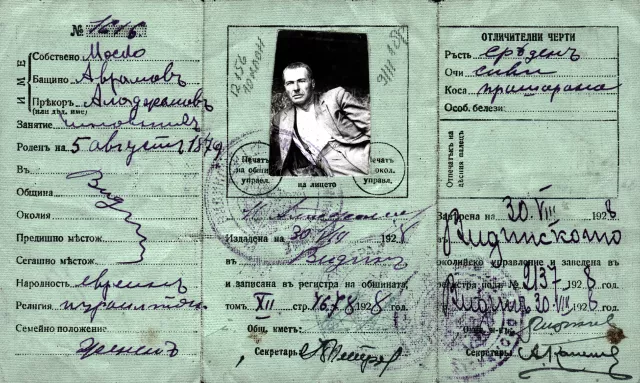 № 1216
ИМЕ
Собствено Мосно
Бащино Аврамовъ
Прѣкоръ
(или дѣд. име)
Занятие
Роденъ на 5 августъ 1879
Въ
Община Видинъ
Околия
Предишно мѣстож.
Сегашно мѣстож.
Народность евреинъ
Религия
Семейно положение
жененъ
12156
Печатъ на общин. управл.
на лицето
Печатъ окол. управл.
Издадена на 30 VIII 1928
въ Видинъ
и записана в регистра на общината,
томъ XII стр. 1678 1928 год.
Общ. кметъ:
Секретарь:
ОТЛИЧИТЕЛНИ ЧЕРТИ
Ръсть срѣденъ
Очи сиви
Коса прошарена
Особ. белези
Отпечатъкъ на дѣсния палецъ
Заверена на 30 VIII 1928
Видинското
околийско управление и заведена в
регистра подъ № 2137 1928
Видинъ 30 VIII 1928
Секретарь: